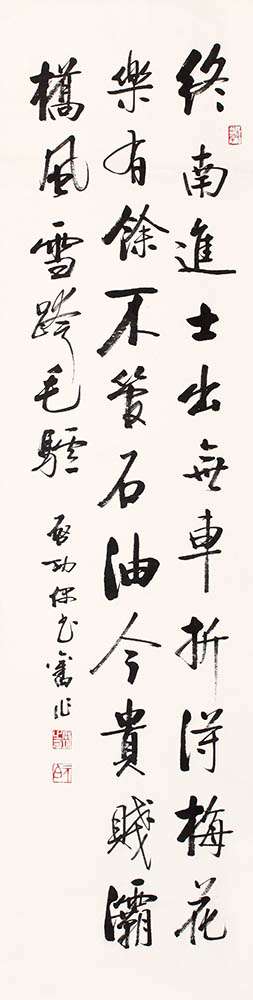 終南進士出無車折得梅花
樂有餘不管石油今貴賤灞
橋風雪跨毛驢
啓功偶書舊作